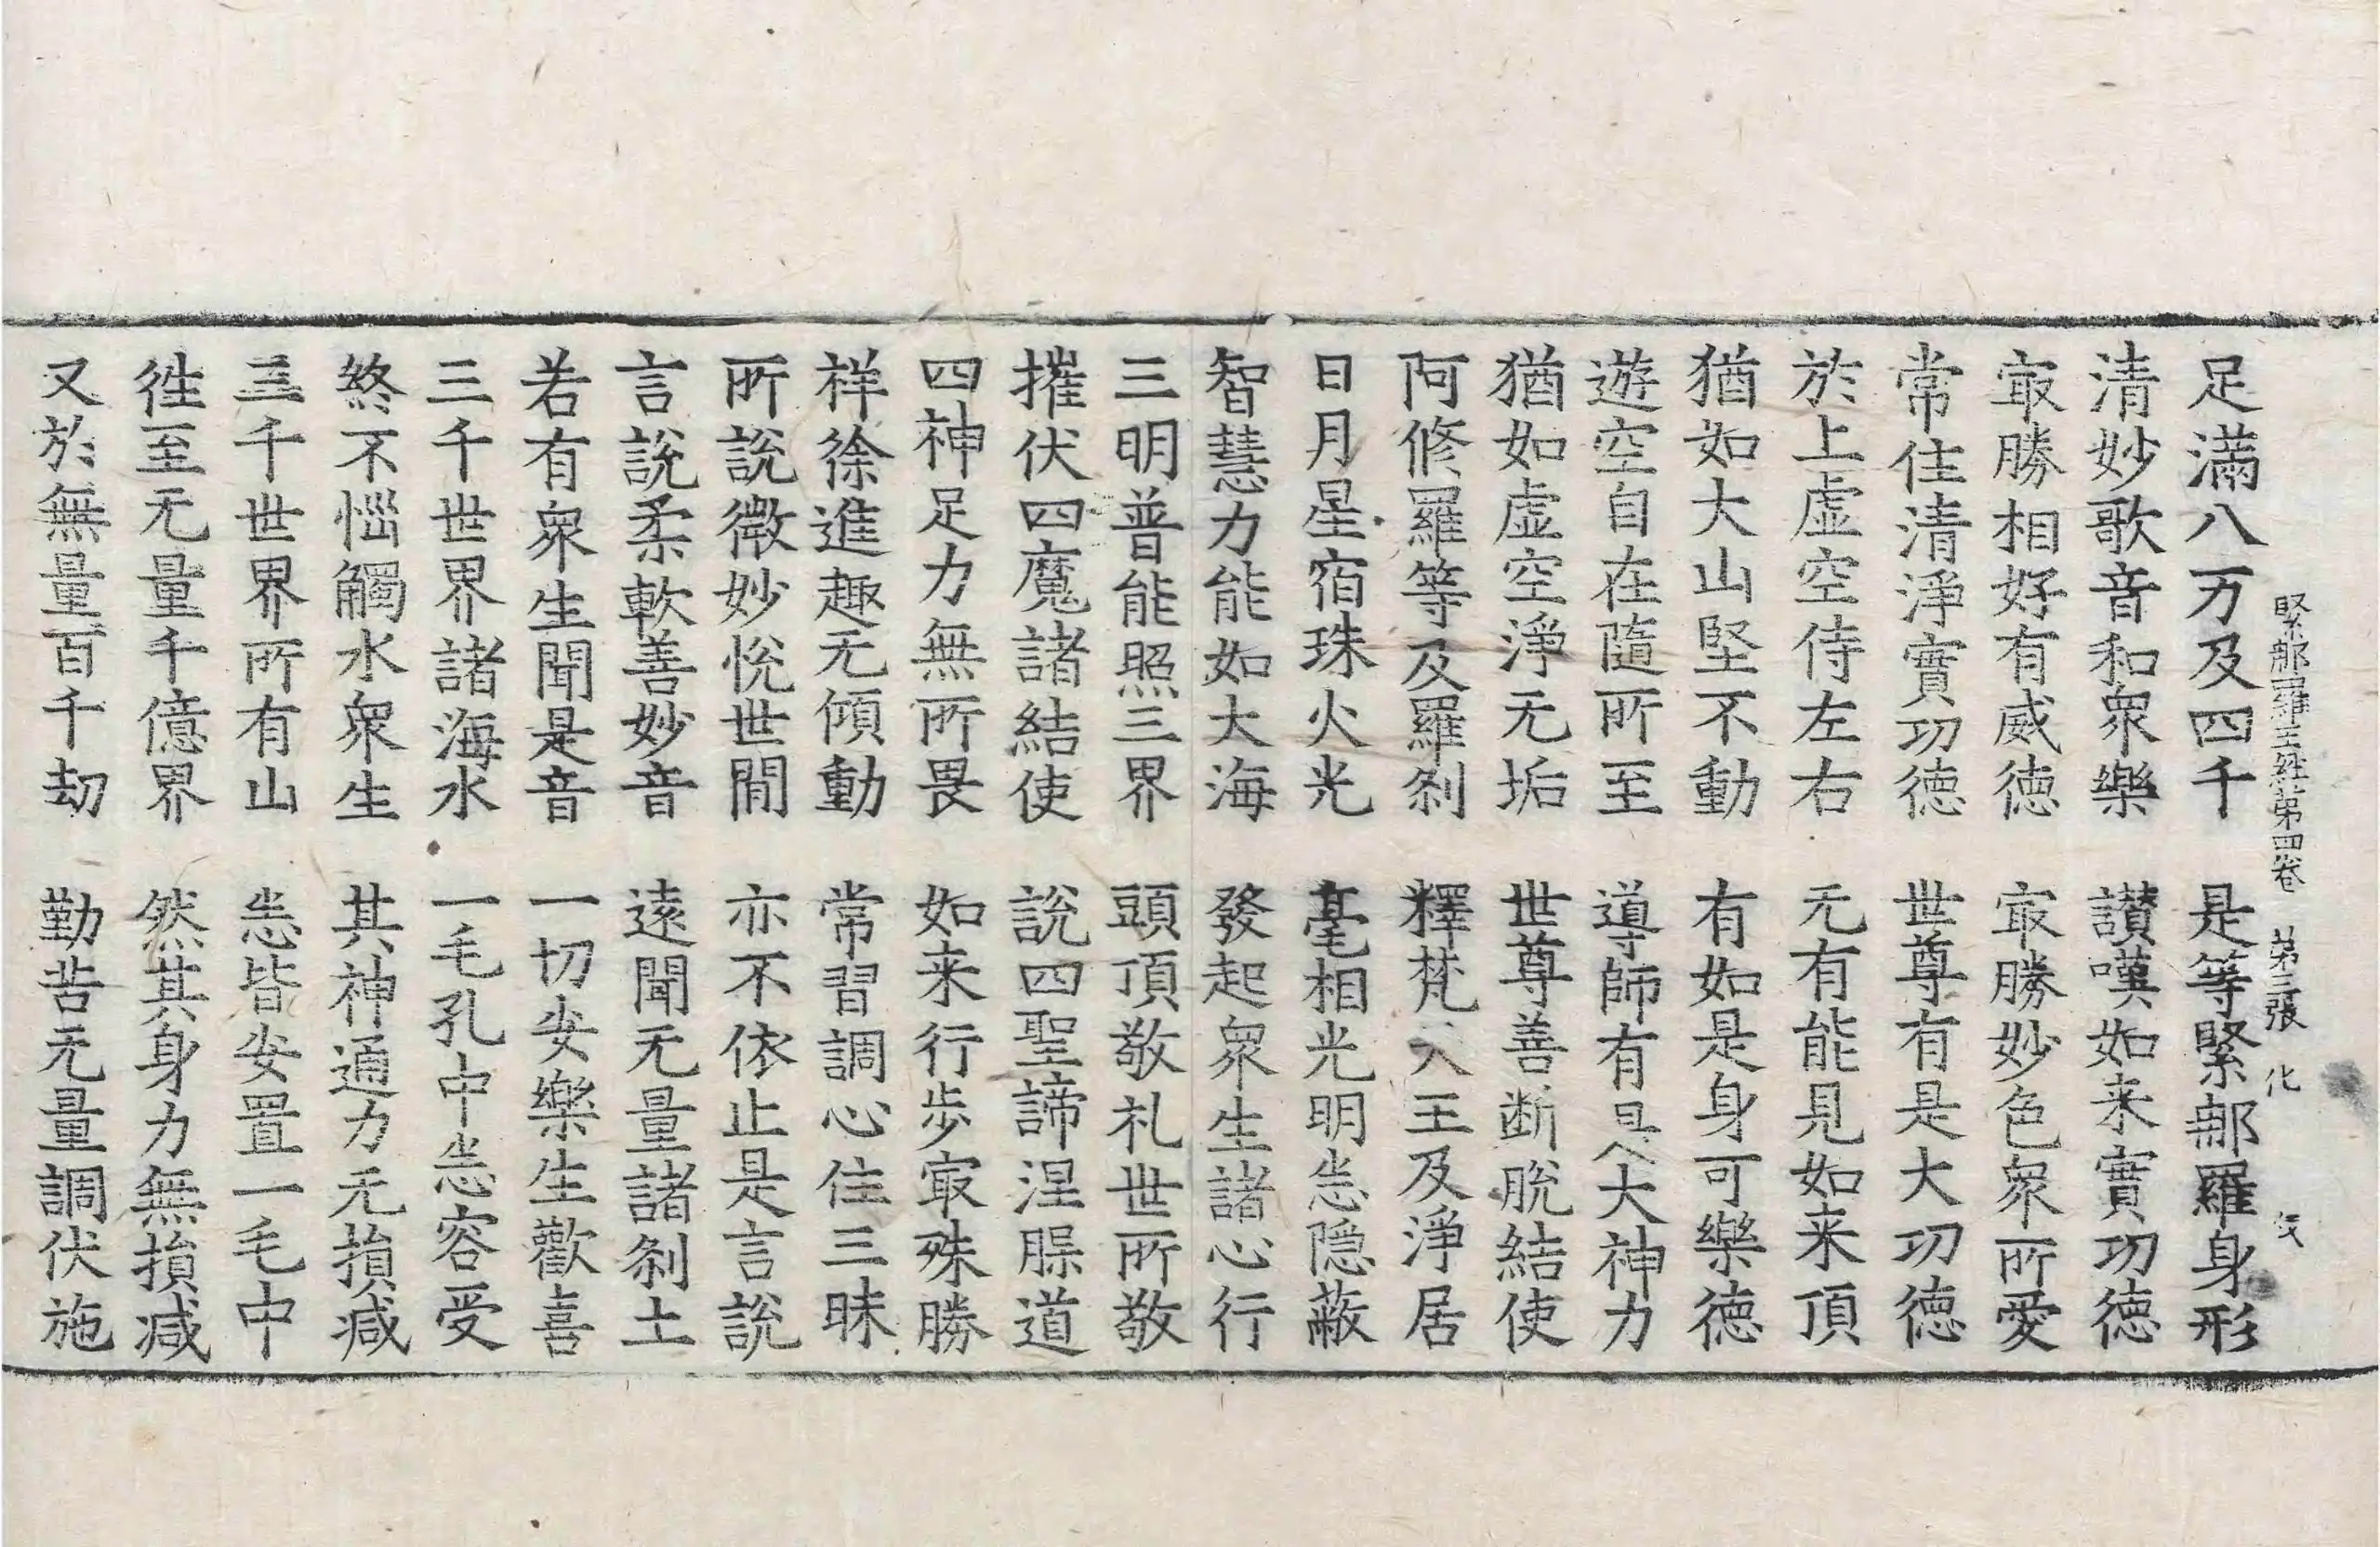 緊那羅王経第四卷　第三張　化
足滿八万及四千　是等緊那羅身形
清妙歌音和衆樂　讃嘆如来實功德
㝡勝相好有威德　㝡勝妙色衆所愛
常住清淨實功德　世尊有是大功德
於上虛空侍左右　无有能見如来頂
猶如大山堅不動　有如是身可樂德
遊空自在隨所至　導師有是大神力
猶如虛空淨无垢　世尊善斷脫結使
阿修羅等及羅刹　釋梵人王及淨居
日月星宿珠火光　毫相光明悉隱蔽
智慧力能如大海　發起衆生諸心行
三明普能照三界　頭頂敬礼世所敬
摧伏四魔諸結使　說四聖諦涅槃道
四神足力無所畏　如来行步㝡殊勝
祥徐進趣无傾動　常習調心住三昧
所說微妙悅世閒　亦不依止是言說
言說柔軟善妙音　遠聞无量諸刹土
若有衆生聞是音　一切安樂生歡喜
三千世界諸海水　一毛孔中悉容受
終不惱觸水衆生　其神通力无損減
三千世界所有山　悉皆安置一毛中
往至无量千億界　然其身力無損減
又於無量百千劫　勤苦无量調伏施